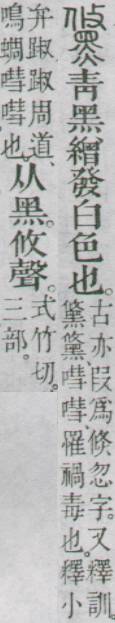 儵青黑繒發白色也。
古亦叚爲倐忽字。又釋訓。
儵儵嘒嘒、罹禍毒也。釋小
弁踧踧周道、
鳴蜩嘒嘒也。
从黑。攸聲。
式竹切。
三部。